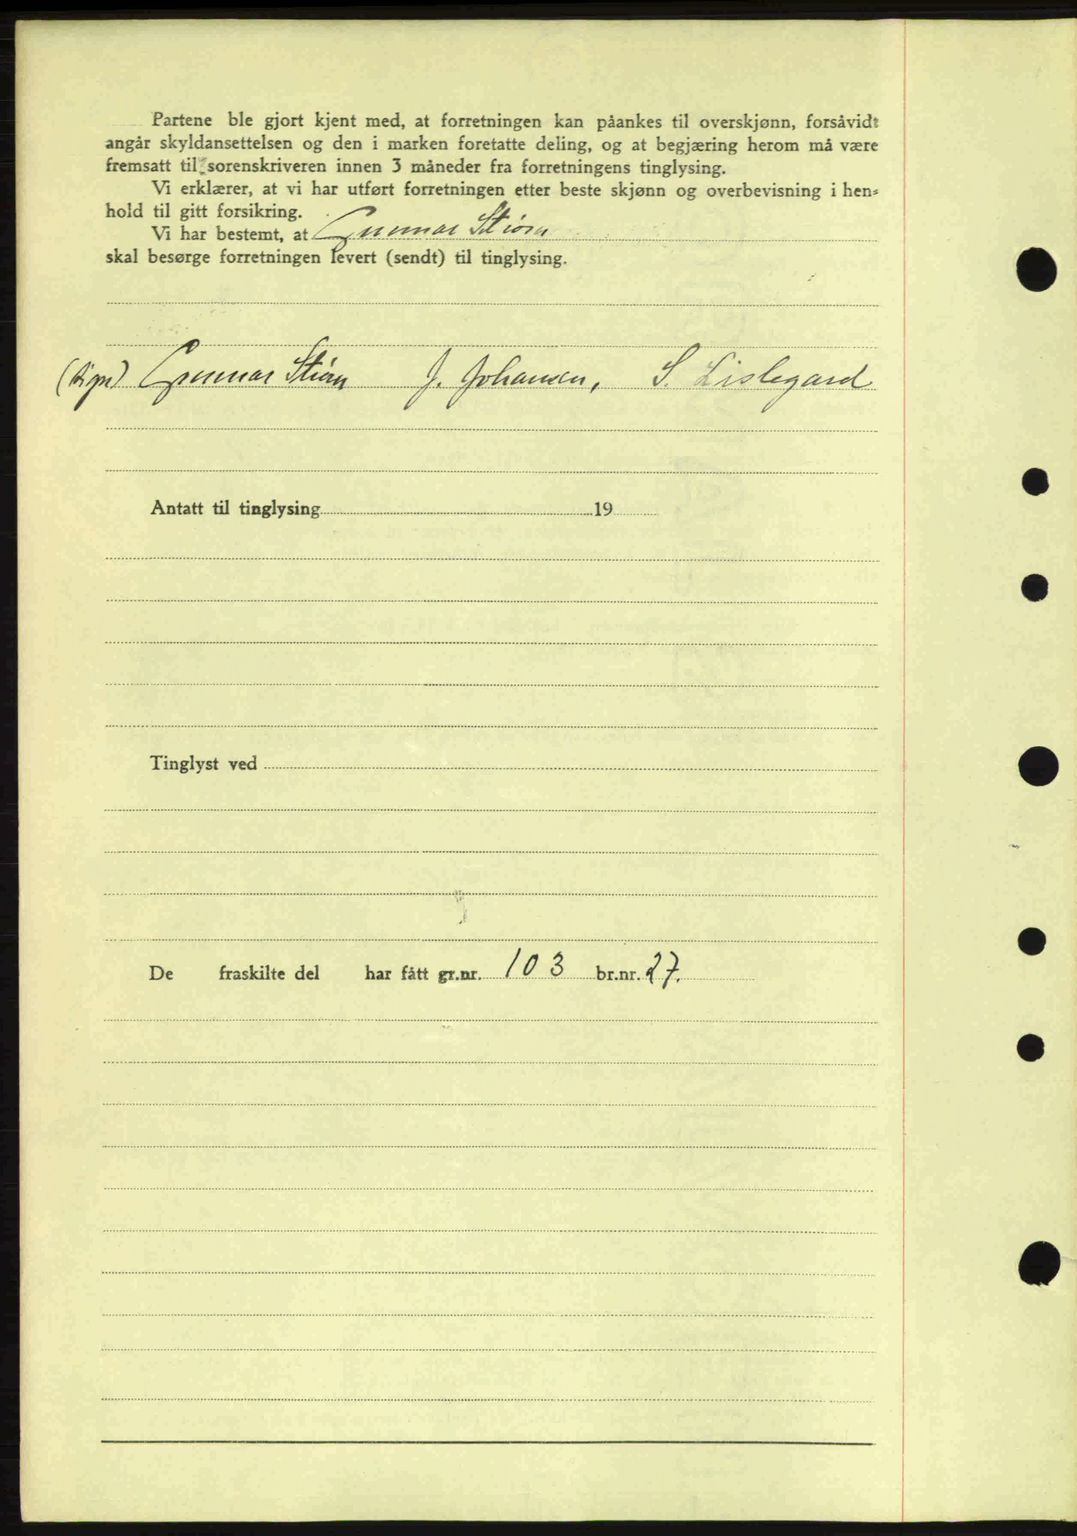 Partene ble gjort kjent med, at forretningen kan påankes til overskjønn, forsåvidt
angår skyldansettelsen og den i marken foretatte deling, og at begjæring herom må være
fremsatt til sorenskriveren innen 3 måneder fra forretningens tinglysing.
Vi erklærer, at vi har utført forretningen etter beste skjønn og overbevisning i hen-
hold til gitt forsikring.
Vi har bestemt, at Gunnar
skal besørge forretningen levert (sendt) til tinglysing.
(sign) Gunnar J. Johansen, S. Lislegard
Antatt til tinglysing 19
Tinglyst ved
De fraskilte del har fått gr.nr. 103 br.nr. 27.